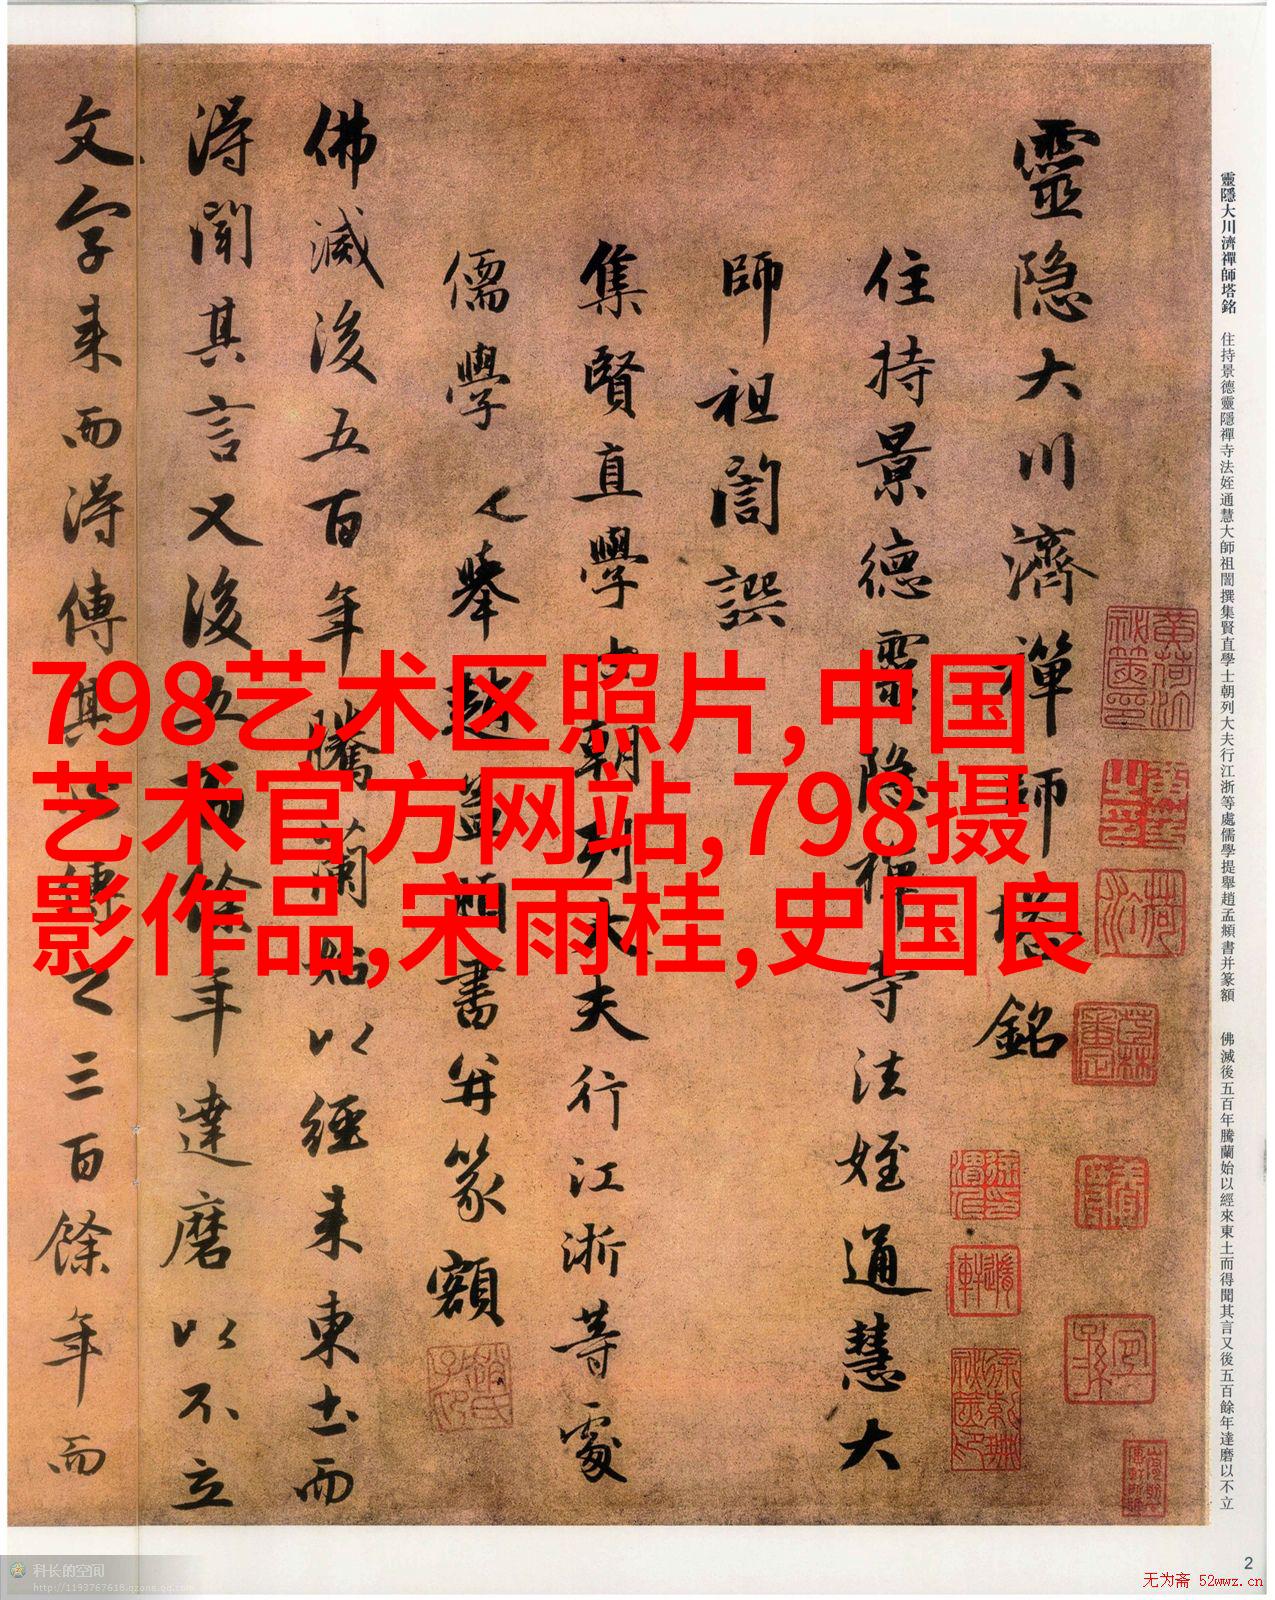 靈隐大川濟禪師塔銘
住持景德靈隐禪寺法姪通慧大
師祖誾譔
集賢直學士朝列大夫行江浙等處
儒學提舉趙孟頫書并篆額
佛滅後五百年騰蘭始以經来東土而
得聞其言又後五百餘年達磨以不立
文字来而得傳其傳之三百餘年而
798艺术区照片,中国
艺术官方网站,798摄
影作品,宋雨桂,史国良
靈隱大川濟禪師塔銘 住持景德靈隱禪寺法姪通慧大師祖誾撰集賢直學士朝列大夫行江浙等處儒學提舉趙孟頫書并篆額 佛滅後五百年騰蘭始以經來東土而得聞其言又後五百餘年達磨以不立
2
科长的空间
http://1193767618.qzone.qq.com
无为斋 52wwz.cn